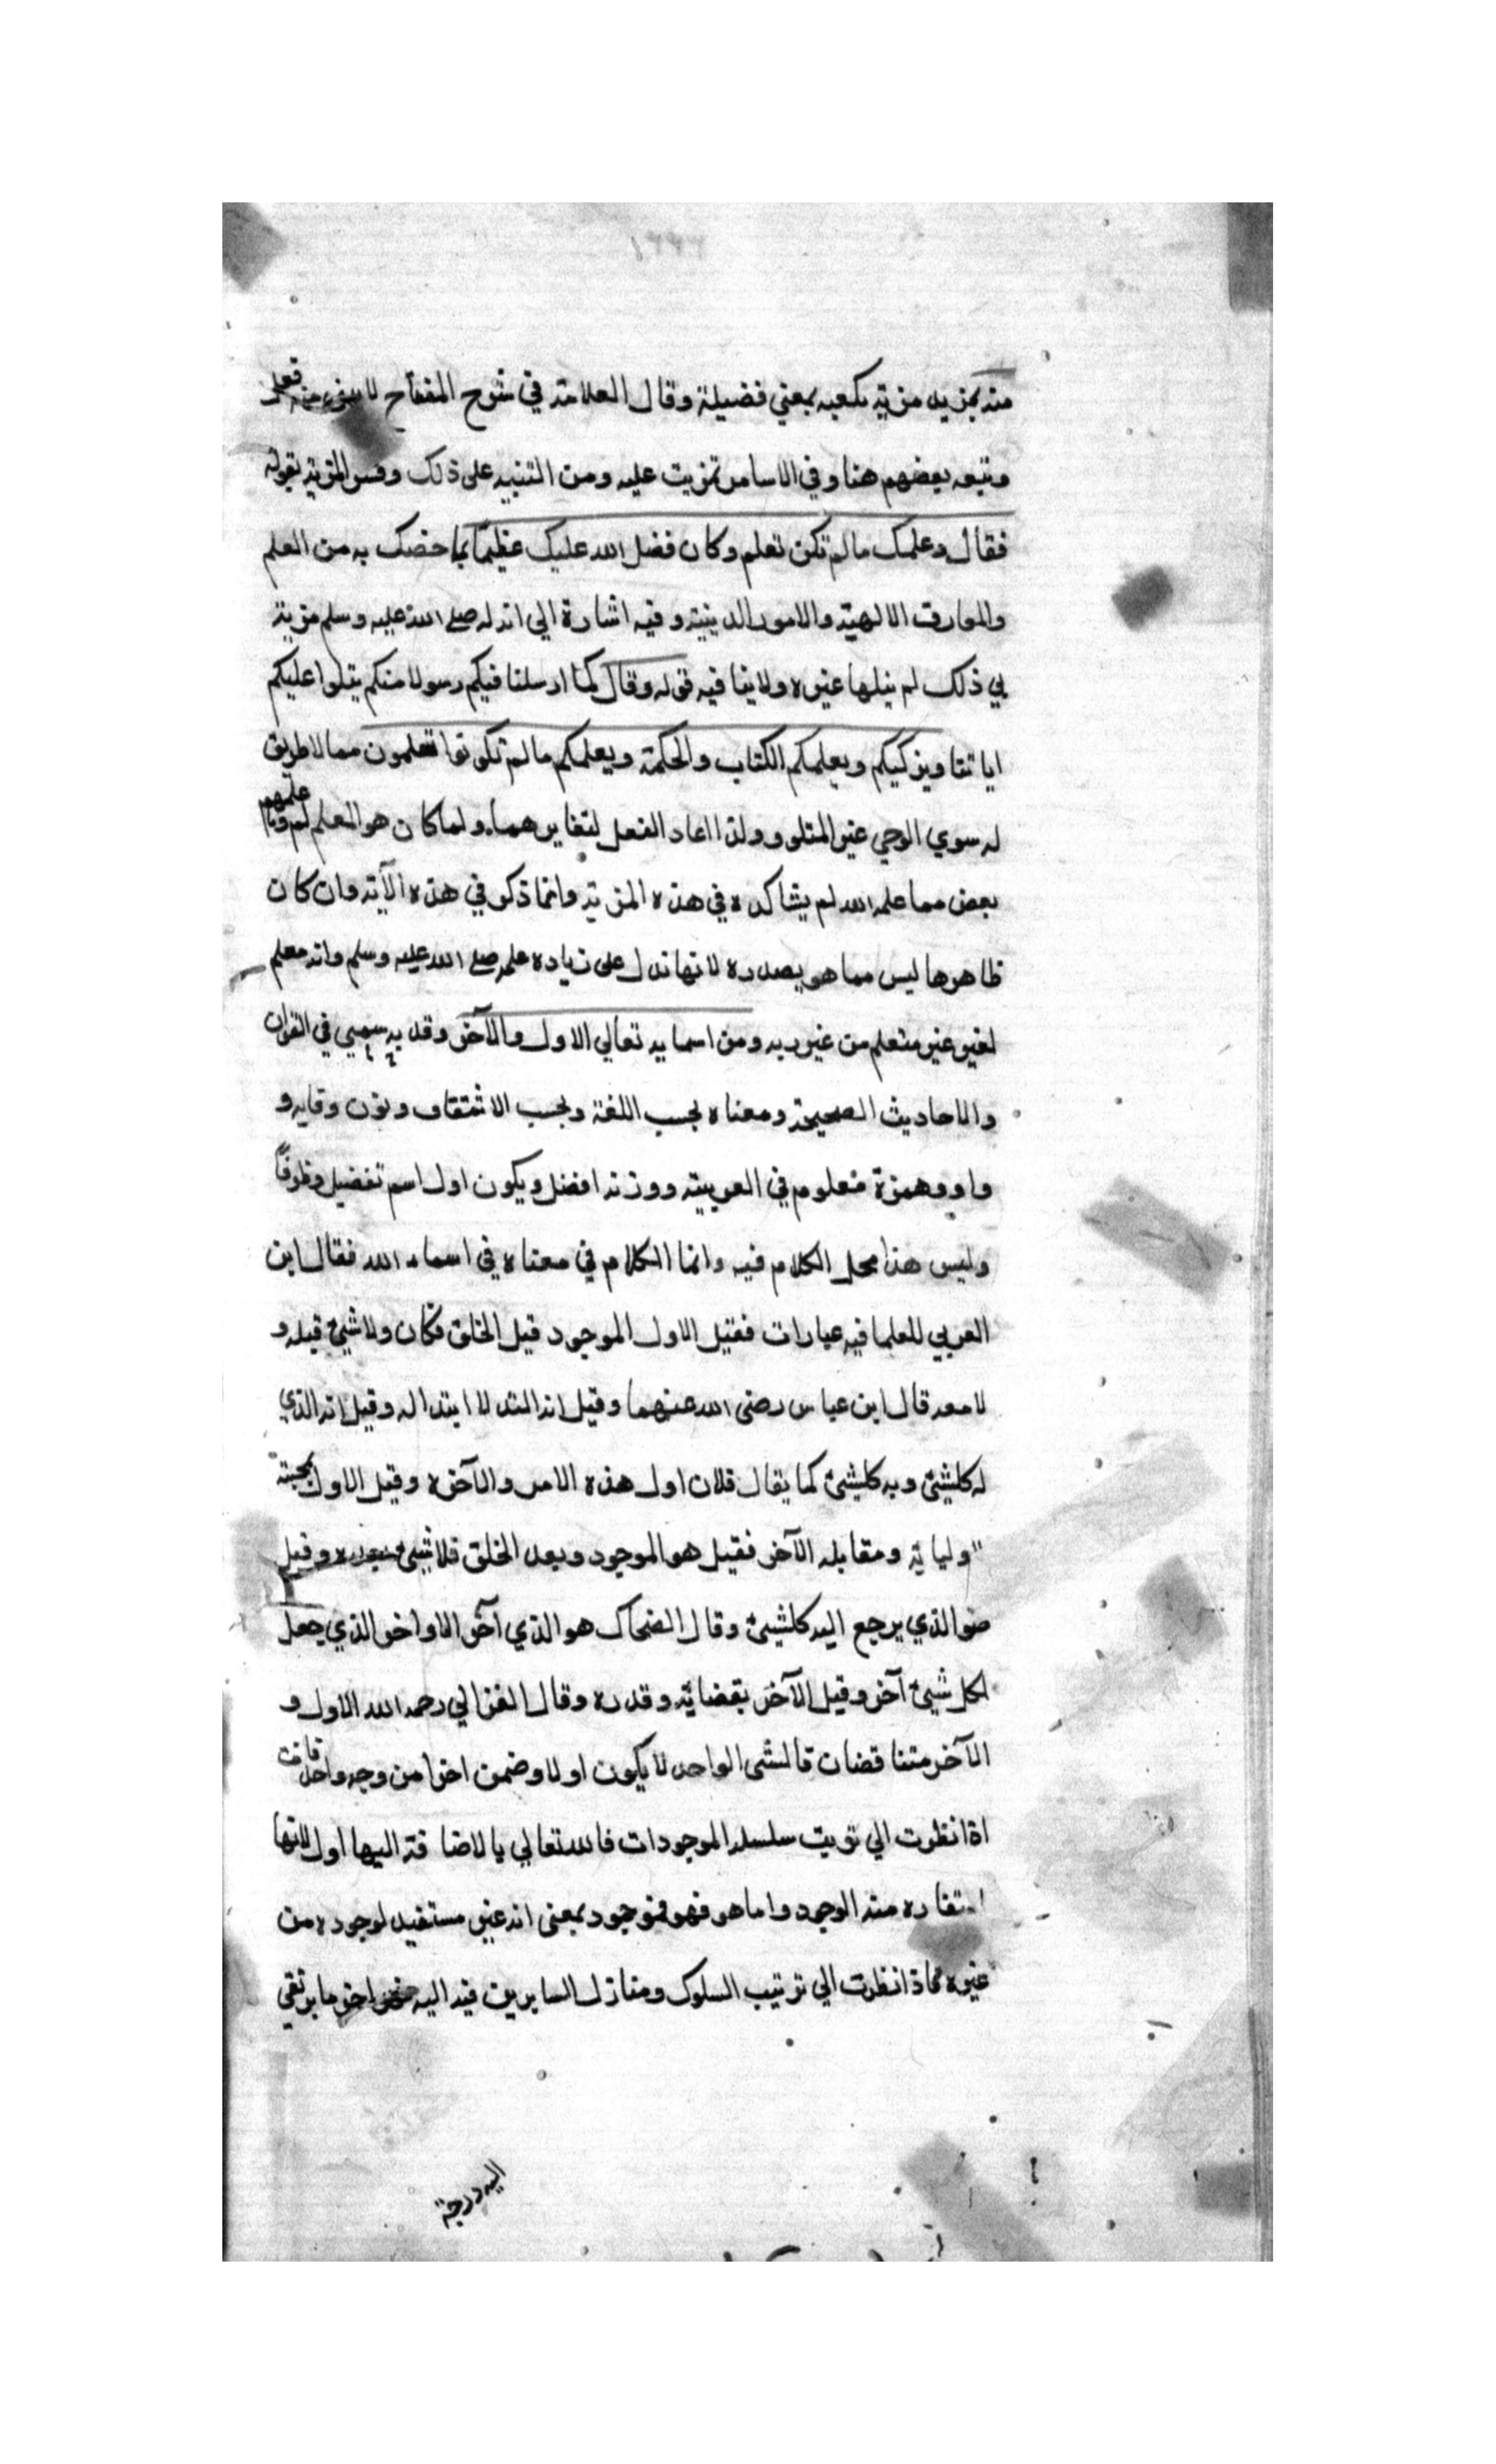 منه بمزيد مزية كعبه بمعني فضيلة وقال العلامة في شرح المفتاح لا يبنى منه فعل
وتبعه بعضهم هنا وفي الاساس تمزيت عليه ومن التنبيه على ذلك وفسر المزية بقوله
فقال وعلمك مالم تكن تعلم وكان فضل الله عليك عظيما بما خصك به من العلم
والمعارف الالهية والامور الدينية وفيه اشارة الي انه له صلى الله عليه وسلم مزية
في ذلك لم ينلها غيره ولا ينا فيه قوله وقال كما ارسلنا فيكم رسولا منكم يتلوا عليكم
اياتنا ويزكيكم ويعلمكم الكتاب والحكمة ويعلمكم مالم تكونوا تعلمون مما لا طريق
له سوي الوحي غير المتلو ولذا اعاد الفعل لتغايرهما ولما كان هو المعلم لهم علمهم
بعض مما علمه الله لم يشاركه في هذه المزية وانما ذكر في هذه الآية وان كان
ظاهرها ليس مما هو بصدده لانها تدل على زياده علمه صلى الله عليه وسلم وانه معلم
لغيره غير متعلم من غير ربه ومن اسمايه تعالي الاول والآخر وقد به سمي في القران
والاحاديث الصحيحة ومعناه بحسب اللغة وبحسب الاشتقاق وبون وفايه و
واو وهمزة معلوم في العربية ووزنه افضل ويكون اول اسم تفضيل وظرفا
وليس هذا محل الكلام فيه وانما الكلام في معناه في اسماء الله فقال ابن
العربي للعلما فيه عبارات فقيل الاول الموجود قبل الخلق فكان ولا شيئ قبله و
لا معه قال ابن عباس رضى الله عنهما وقيل انه الذي لا ابتدا له وقيل انه الذي
له كلشيئ وبه كلشيئ كما يقال فلان اول هذه الامر والآخره وقيل الاول بمحبته
وليايه ومقابله الآخر فقيل هو الموجود وبعد الخلق فلا شيئ بعده وقيل
هو الذي يرجع اليه كلشيئ وقال الضحاك هو الذي آخر الاواخر الذي جعل
لكل شيئ آخر وقيل الآخر بقضايه وقدره وقال الغزالي رحمه الله الاول و
الآخر متنا قضان فالشى الواحد لا يكون اولا وضمن اخرا من وجه واحد فانت
اذا نظرت الي ترتيب سلسلة الموجودات فالله تعالي بالاضا فة اليها اول لانها
استفاده منه الوجود واما هو فهو موجود بمعنى انه غير مستفيد لوجوده من
غيره فاذا نظرت الي ترتيب السلوك ومنازل السايرين فيه اليه فهو اخر ما يرتقي
اليه درجة